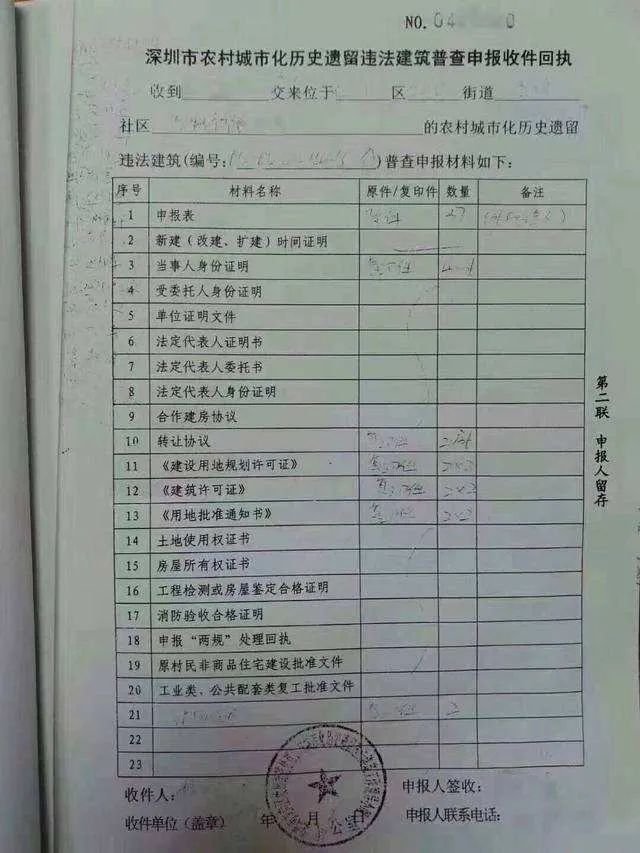 NO. 04
深圳市农村城市化历史遗留违法建筑普查申报收件回执
收到 交来位于 区 街道
社区 的农村城市化历史遗留
违法建筑(编号: )普查申报材料如下:
序号 材料名称 原件/复印件 数量 备注
1 申报表
2 新建（改建、扩建）时间证明
3 当事人身份证明 复印件
4 受委托人身份证明
5 单位证明文件
6 法定代表人证明书
7 法定代表人委托书
8 法定代表人身份证明
9 合作建房协议
10 转让协议
11 《建设用地规划许可证》 复印件 2×2
12 《建筑许可证》 复印件 2×2
13 《用地批准通知书》 复印件 2×2
14 土地使用权证书
15 房屋所有权证书
16 工程检测或房屋鉴定合格证明
17 消防验收合格证明
18 申报“两规”处理回执
19 原村民非商品住宅建设批准文件
20 工业类、公共配套类复工批准文件
21
22
23
第二联 申报人留存
收件人: 申报人签收:
收件单位（盖章） 年 月 申报人联系电话: